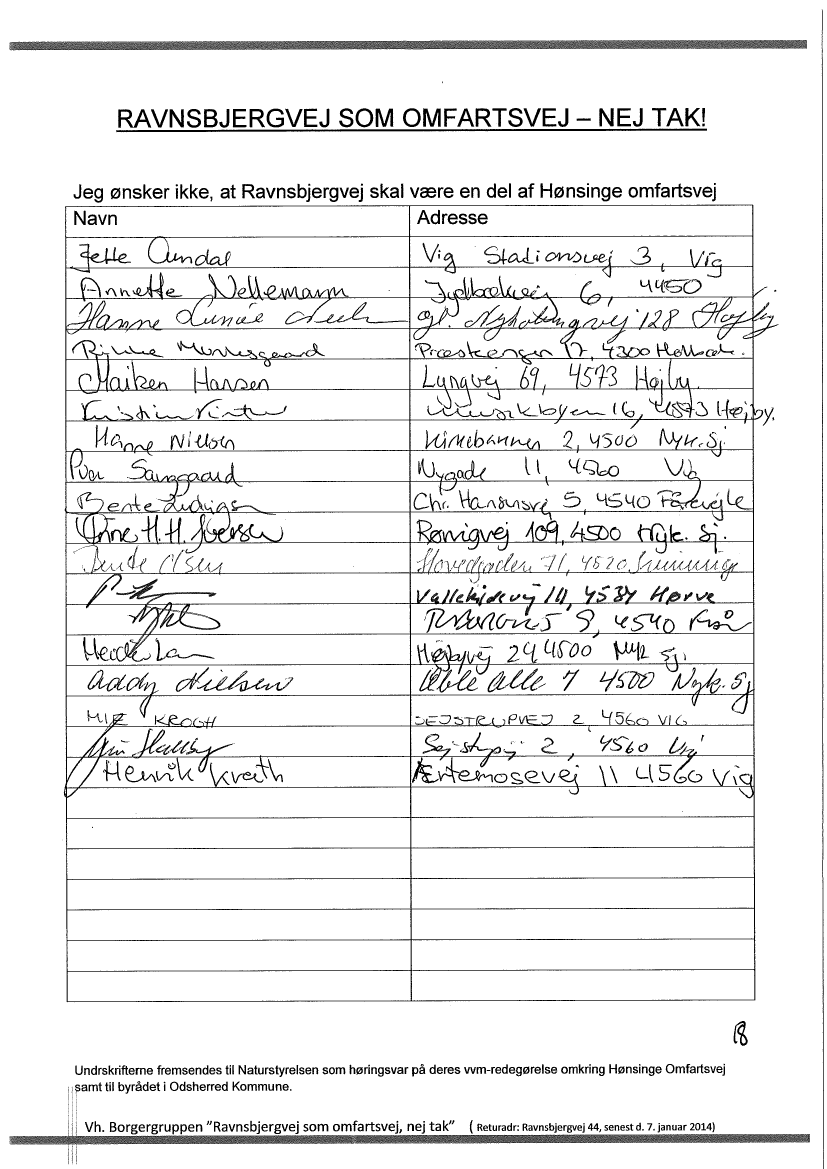 RAVNSBJERGVEJ SOM OMFARTSVEJ – NEJ TAK!
Jeg ønsker ikke, at Ravnsbjergvej skal være en del af Hønsinge omfartsvej
Navn Adresse
Jette Vig Stadionsvej 3, Vig
Annette Nellemann 6, 4450
Hanne 128 Højby
17, 4300 Holbæk.
Maiken Hansen Lyngvej 69, 4573 Højby.
Kristian Musikbyen 16, 4573 Højby.
Hanne Nielsen 2, 4500 Nyk. Sj
Nygade 11, 4560 Vig
Bente Chr. Hansensvej 5, 4540 Fårevejle
Anne H. H. Iversen Rønvigvej 109, 4500 Nyk. Sj.
Bente Olsen Hovedgaden 71, 4520 Svinninge
Vallekildevej 111, 4534 Hørve
9, 4540
Højbyvej 24 4500 Nyk Sj.
Addy Nielsen Able Alle 7 4500 Nyk. Sj
MIE KROGH SEJSTRUPVEJ 2, 4560 VIG
Sejstrupvej 2, 4560 Vig
Henrik Kreith Ærtemosevej 11 4560 Vig
18
Undrskrifterne fremsendes til Naturstyrelsen som høringsvar på deres vvm-redegørelse omkring Hønsinge Omfartsvej
samt til byrådet i Odsherred Kommune.
Vh. Borgergruppen "Ravnsbjergvej som omfartsvej, nej tak" ( Returadr: Ravnsbjergvej 44, senest d. 7. januar 2014)